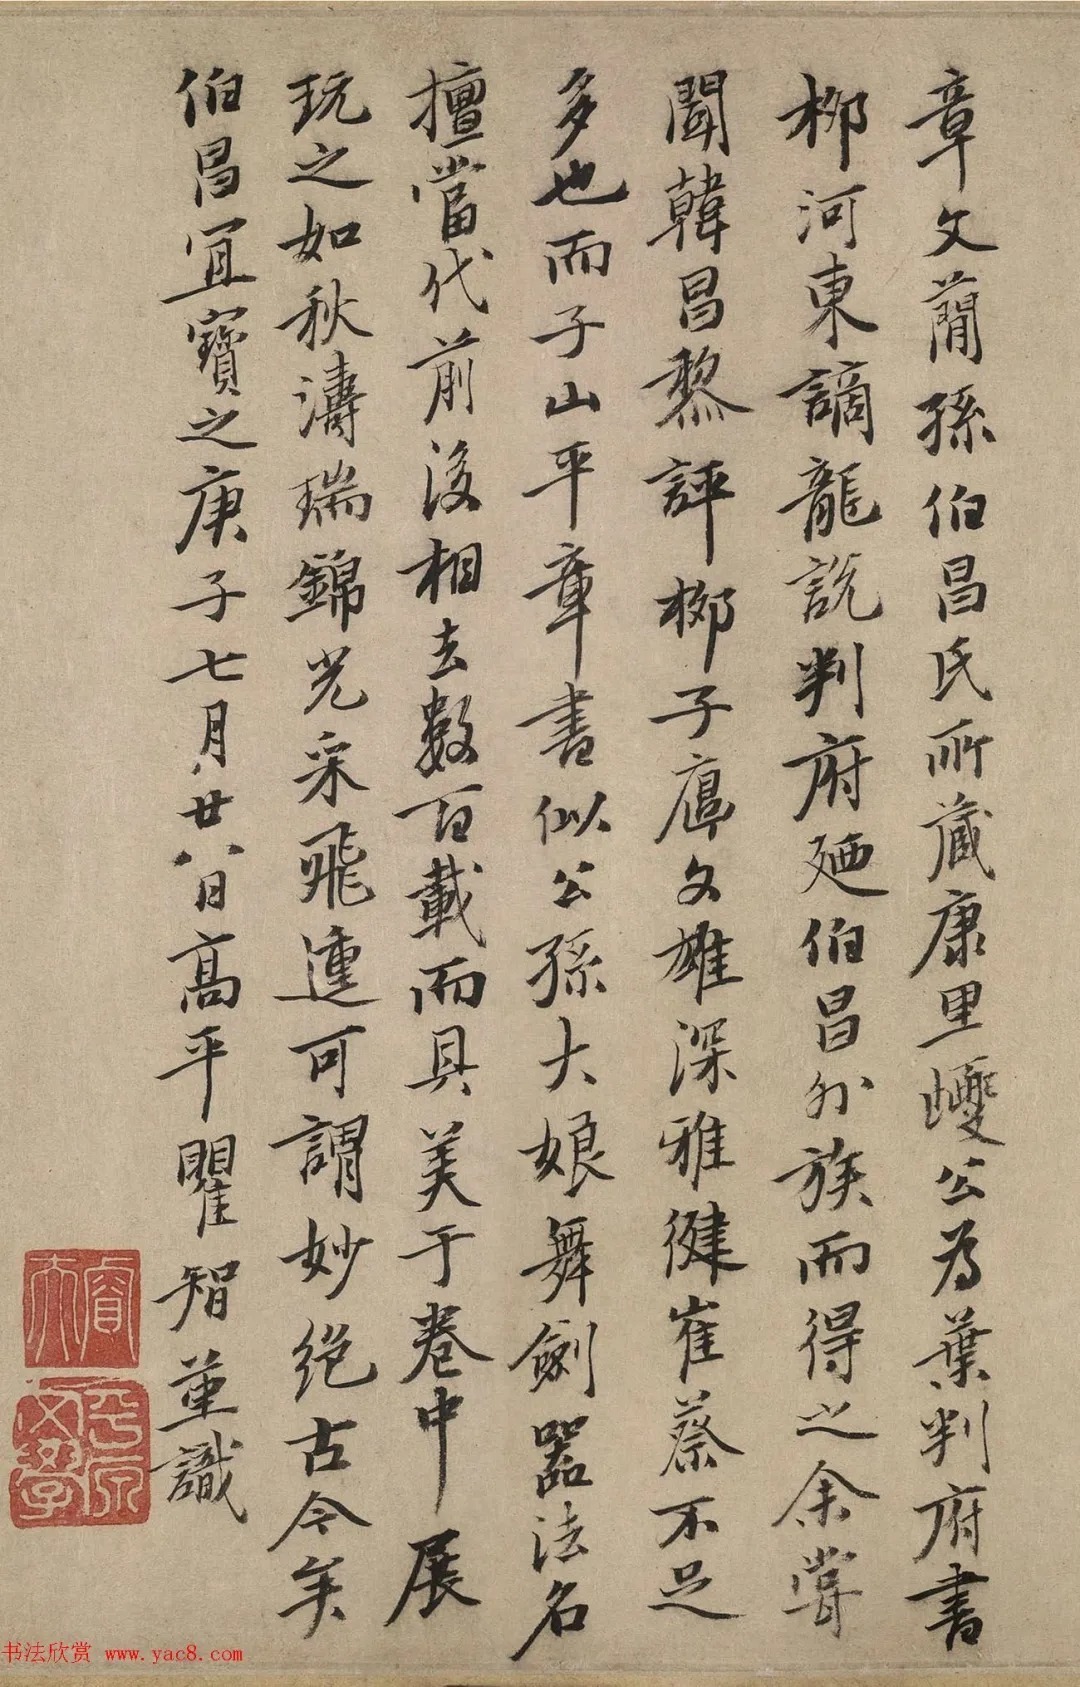 章文蕳孫伯昌氏所藏康里巙公為葉判府書
栁河東謫龍說判府廼伯昌外族而得之余嘗
聞韓昌黎評栁子厚文雄深雅健崔蔡不足
多也而子山平章書似公孫大娘舞劍器法名
擅當代前後相去數百載而具美于卷中展
玩之如秋濤瑞錦光采飛運可謂妙絕古今矣
伯昌宜寶之庚子七月廿八日髙平瞿智
堇識
睿夫
平原文學
书法欣赏 www.yac8.com